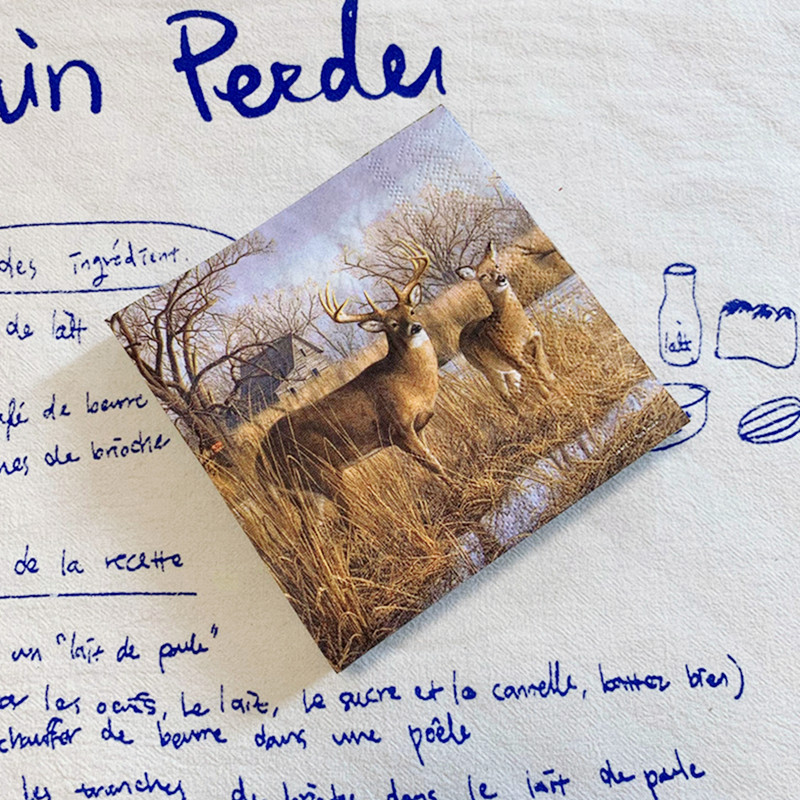 ain Perdu
des ingrédient.
de lait
lait
café de beurre
nes de brioche
de la recette
un "lait de poule"
les oeufs, le lait, le sucre et la cannelle, battez bien)
chauffer de beurre dans une poêle
les tranches de brioche dans le lait de poule